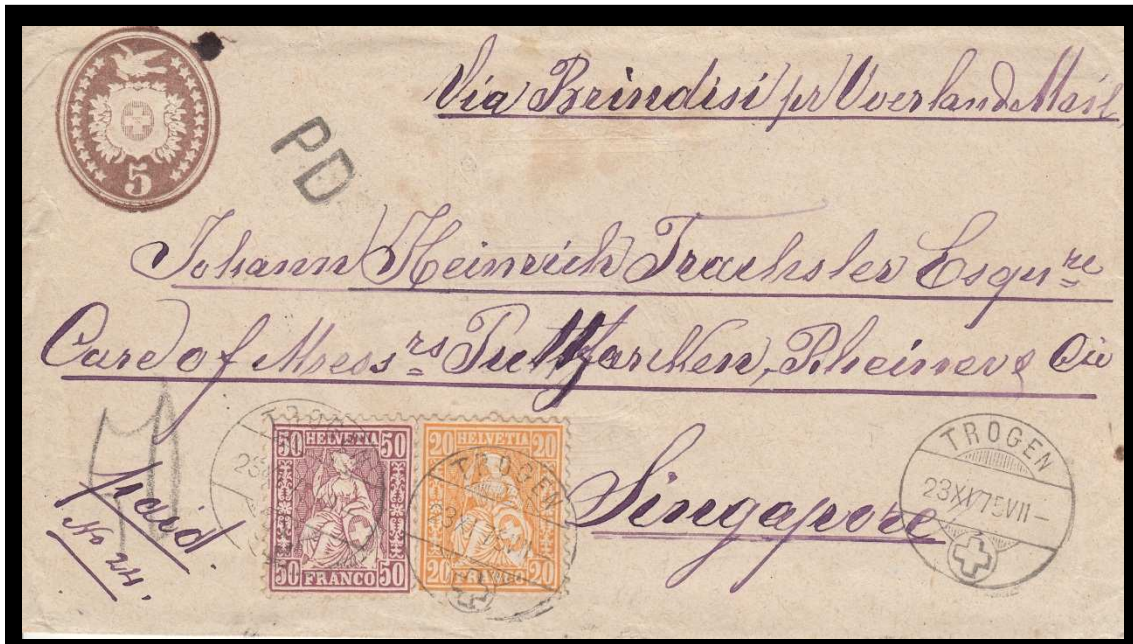 5
Via Brindisi pr Overland Mail
PD
Johann Heinrich Trachsler Esqu re
Care of Mess rs Puttfarcken, Rheiner & Cie
Singapore
paid
No 24.
TROGEN
50 HELVETIA 50
50 FRANCO 50
TROGEN
20 HELVETIA 20
20 FRANCO 20
TROGEN
23 XI 75 VII–